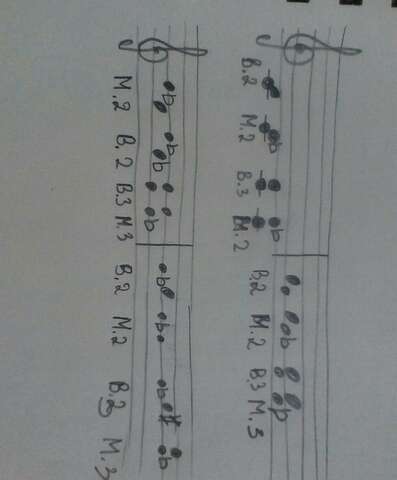 B.2 M.2 B.3 M.2 B.2 M.2 B3 M.3
M.2 B.2 B.3 M.3 B.2 M.2 B.2 M.3